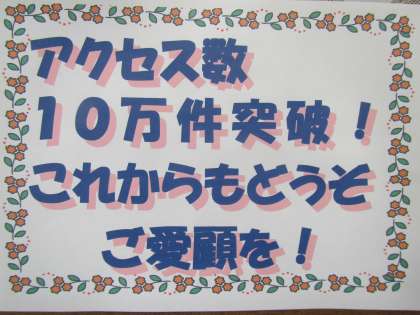 アクセス数
１０万件突破！
これからもどうぞ
ご愛顧を！